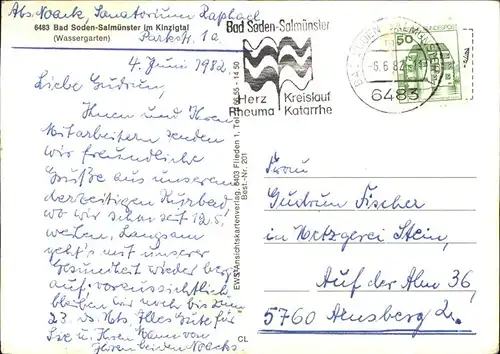 Abs. Noack, Sanatorium Raphael
6483 Bad Soden-Salmünster im Kinzigtal
(Wassergarten)
Parkstr. 1a
4. Juni 1982
Liebe Gudrun,
Ihnen und Ihren
Mitarbeitern senden
wir freundliche
Grüße aus unserem
derzeitigen Kurbad
wo wir schon seit 12.5.
weilen. Langsam
geht's mit unserer
Gesundheit wieder berg-
auf. voraussichtlich
bleiben wir noch bis zum
23. ds. Mts. Alles Gute für
Sie u. Ihren Mann von
Ihren beiden Noacks.
EWS Ansichtskartenverlag, 6403 Flieden 1, Tel.
Best.-Nr. 201
CL
Bad Soden-Salmünster
Herz Kreislauf
Rheuma Katarrhe
BAD SODEN-SALMÜNSTER
-6.6.82
6483
50
Frau
Gudrun Fischer
in Metzgerei Stein,
Auf der Alm 36,
5760 Arnsberg 2.